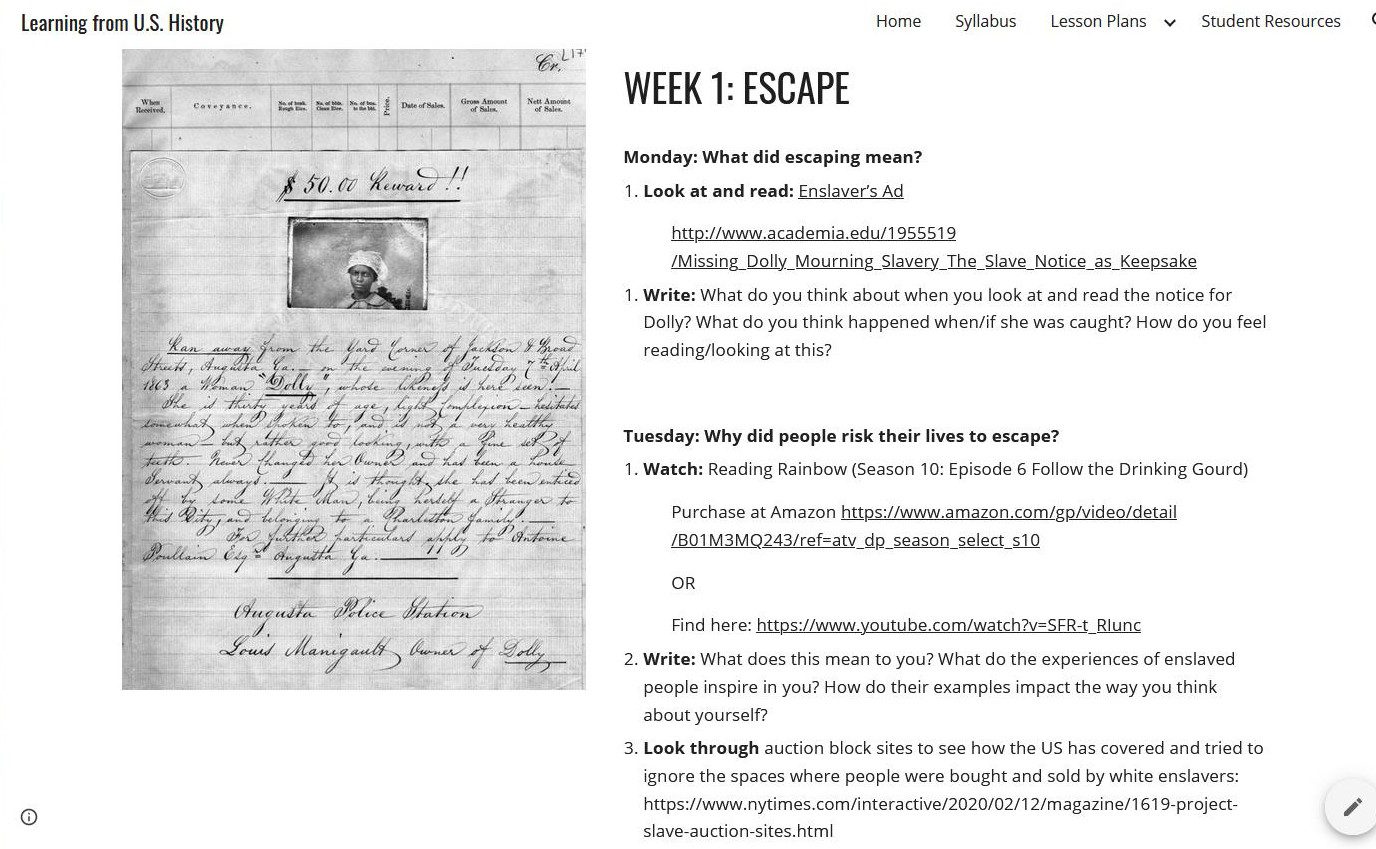 Learning from U.S. History
Home Syllabus Lesson Plans Student Resources
Cr.
When Received.
Coveyance.
No. of bush. Rough Rice.
No. of bbls. Clean Rice.
No. of bus. to the bbl.
Price.
Date of Sales.
Gross Amount of Sales.
Nett Amount of Sales.
$ 50.00 Reward!!
Ran away from the Yard Corner of Jackson & Broad
Streets, Augusta Ga. — on the evening of Tuesday 7th April
1863 a Woman "Dolly", whose likeness is here seen. —
She is thirty years of age, light Complexion — hesitates
somewhat when spoken to, and is not a very healthy
woman — but rather good looking, with a fine set of
teeth. Never changed her Owner and has been a house
Servant always. — It is thought she has been enticed
off by some White Man, being herself a Stranger to
this City, and belonging to a Charleston family. —
For further particulars apply to Antoine
Poullain Esqr Augusta Ga. —
Augusta Police Station
Louis Manigault Owner of Dolly
WEEK 1: ESCAPE
Monday: What did escaping mean?
1. Look at and read: Enslaver's Ad
http://www.academia.edu/1955519
/Missing_Dolly_Mourning_Slavery_The_Slave_Notice_as_Keepsake
1. Write: What do you think about when you look at and read the notice for
Dolly? What do you think happened when/if she was caught? How do you feel
reading/looking at this?
Tuesday: Why did people risk their lives to escape?
1. Watch: Reading Rainbow (Season 10: Episode 6 Follow the Drinking Gourd)
Purchase at Amazon https://www.amazon.com/gp/video/detail
/B01M3MQ243/ref=atv_dp_season_select_s10
OR
Find here: https://www.youtube.com/watch?v=SFR-t_RIunc
2. Write: What does this mean to you? What do the experiences of enslaved
people inspire in you? How do their examples impact the way you think
about yourself?
3. Look through auction block sites to see how the US has covered and tried to
ignore the spaces where people were bought and sold by white enslavers:
https://www.nytimes.com/interactive/2020/02/12/magazine/1619-project-
slave-auction-sites.html